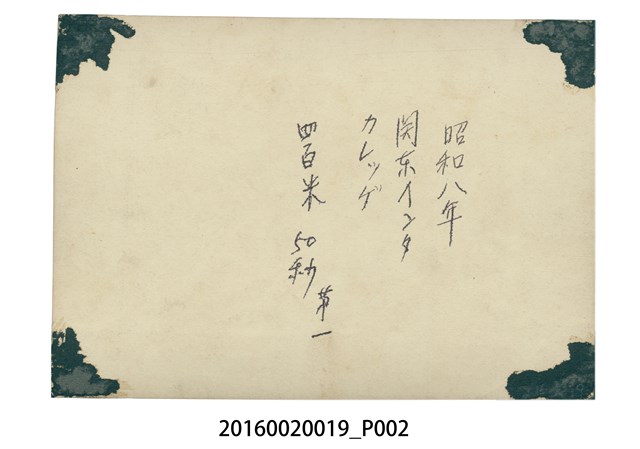 昭和八年
関東インタ
カレッヂ
四百米 50秒 第一
20160020019_P002